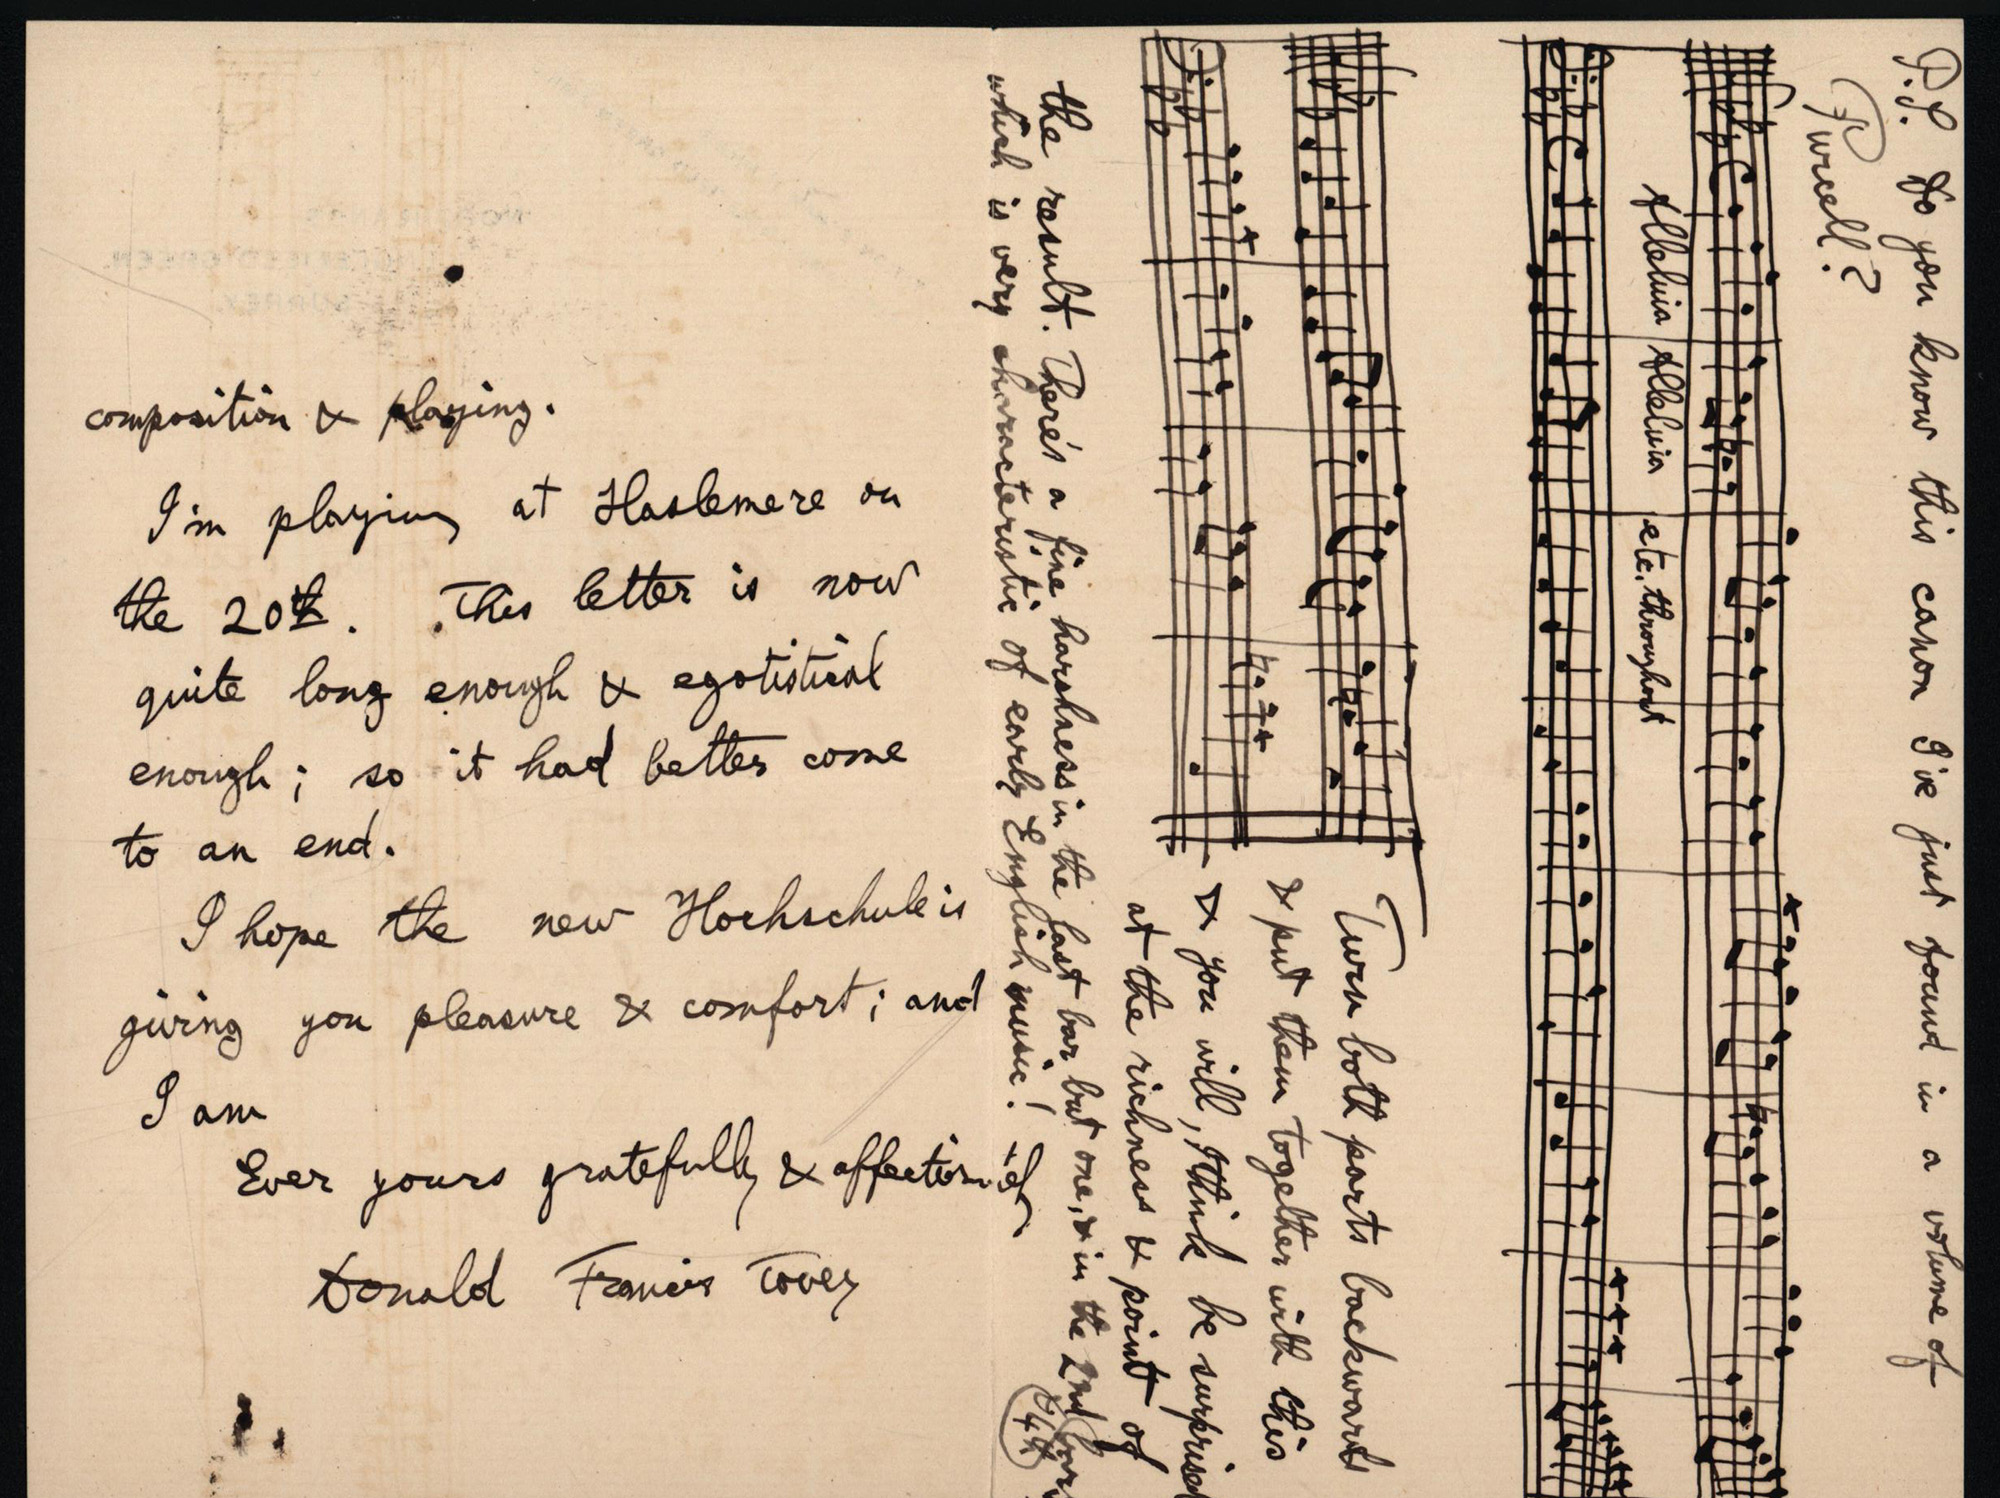 composition & playing.
I'm playing at Haslemere on
the 20th. This letter is now
quite long enough & egotistical
enough; so it had better come
to an end.
I hope the new Hochschule is
giving you pleasure & comfort; and
I am
Ever yours gratefully & affectionately
Donald Francis Tovey
P.S. Do you know this canon I've just found in a volume of
Purcell?
Alleluia Alleluia etc. throughout
Turn both parts backwards
& put them together with this
& you will, I think be surprised
at the richness & point of
the result. There's a fine harshness in the last bar but one, & in the 2nd bar
which is very characteristic of early English music!